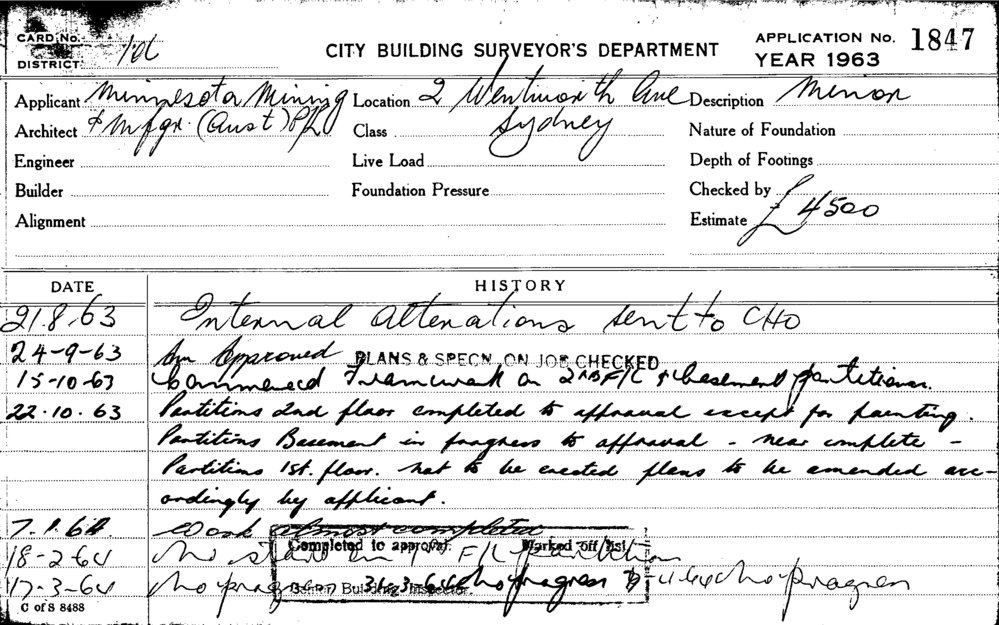 CARD No.
DISTRICT
CITY BUILDING SURVEYOR'S DEPARTMENT
APPLICATION No. 1847
YEAR 1963
Applicant Minnesota Mining Location 2 Wentworth Ave Description Minor
Architect & Mfgr. (Aust) P/L Class Sydney Nature of Foundation
Engineer Live Load Depth of Footings
Builder Foundation Pressure Checked by
Alignment Estimate £4500
DATE HISTORY
21.8.63 Internal alterations sent to CHO
24-9-63 Approved PLANS & SPECN. ON JOB CHECKED
15-10-63 Commenced Framework on 2nd F/C & basement partitions.
22.10.63 Partitions 2nd floor completed to approval except for painting.
Partitions Basement in progress to approval - near complete -
Partitions 1st. floor. not to be erected plans to be amended acc-
ordingly by applicant.
7.1.64 Work almost completed
Completed to approval. Marked off list
18-2-64 No start on 1 F/C partition
17-3-64 No progress 31-3-64 No progress No progress
Building Inspector.
C of S 8488